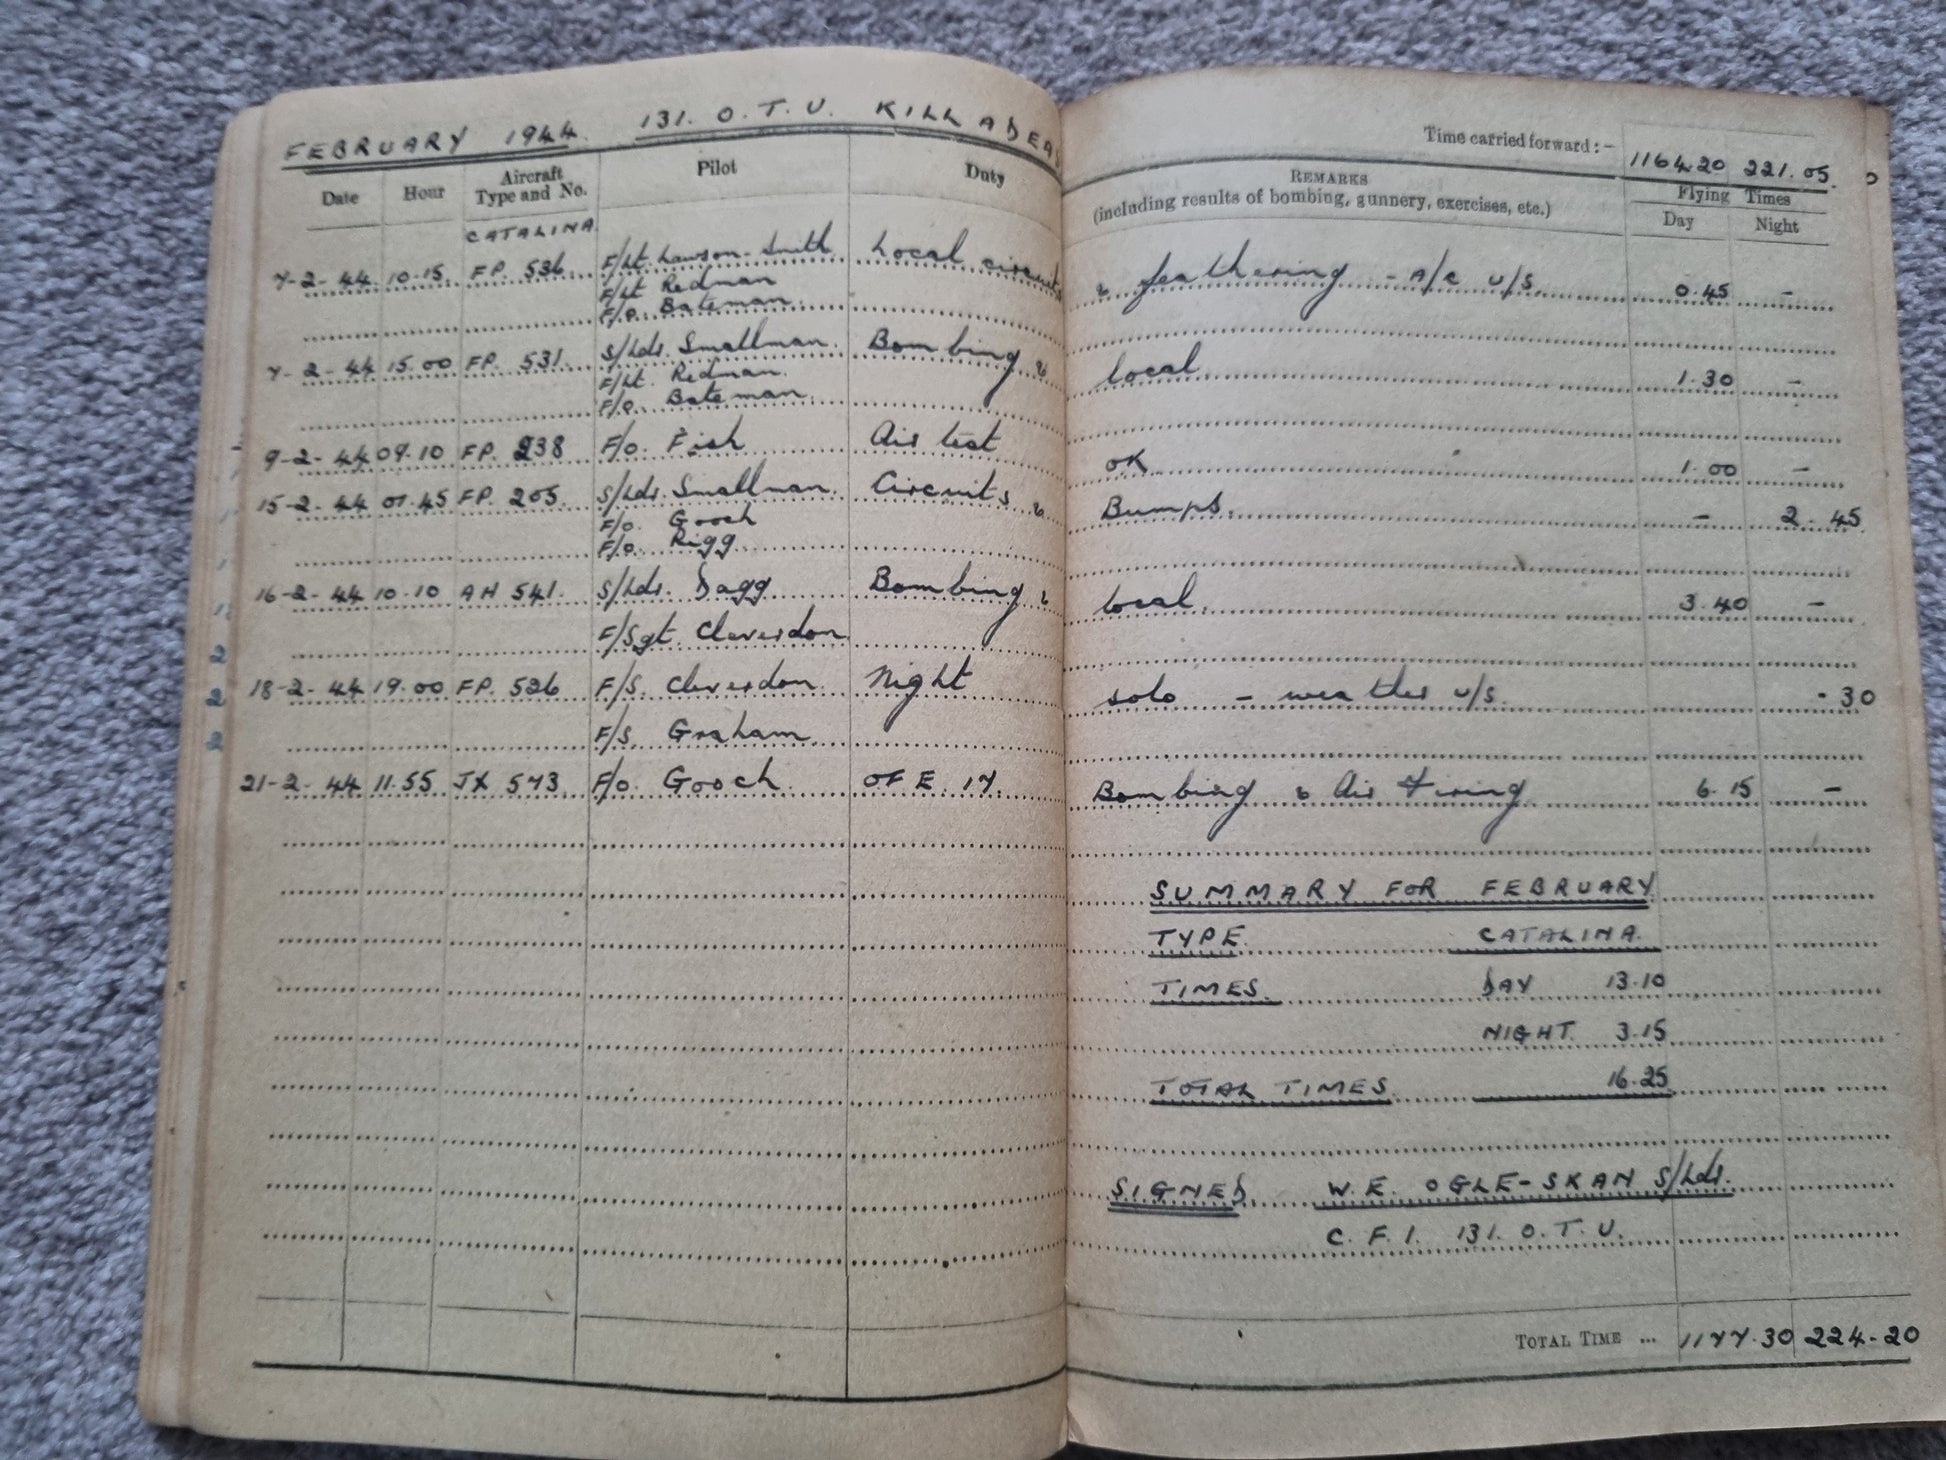 FEBRUARY 1944. 131. O.T.U. KILLADEA
Time carried forward :- 1164.20 221.05.
Date Hour Aircraft Type and No. Pilot Duty REMARKS (including results of bombing, gunnery, exercises, etc.) Flying Times Day Night
CATALINA
7-2-44 10.15 FP. 536 F/Lt. Lawson-Smith Local circuits & feathering - A/C U/S. 0.45 -
F/Lt Redman
F/O. Bateman.
7-2-44 15.00 FP. 531. S/Ldr. Smallman. Bombing & local. 1.30 -
F/Lt. Redman.
F/O. Bateman.
9-2-44 09.10 FP. 238 F/O. Fish Air test OK 1.00 -
15-2-44 01.45 FP. 205. S/Ldr. Smallman. Circuits & Bumps. - 2.45
F/O. Gooch
F/O. Rigg.
16-2-44 10.10 AH 541. S/Ldr. Dagg Bombing & local. 3.40 -
F/Sgt. Cleverdon.
18-2-44 19.00 FP. 526 F/S. Cleverdon. Night solo - weather U/S. .30
F/S. Graham
21-2-44 11.55 JX 573 F/O. Gooch. OF E. 17. Bombing & Air Firing. 6.15 -
SUMMARY FOR FEBRUARY
TYPE. CATALINA.
TIMES. DAY 13.10
NIGHT. 3.15
TOTAL TIMES. 16.25
SIGNED. W.E. OGLE-SKAN S/Ldr.
C.F.I. 131. O.T.U.
TOTAL TIME ... 1177.30 224.20